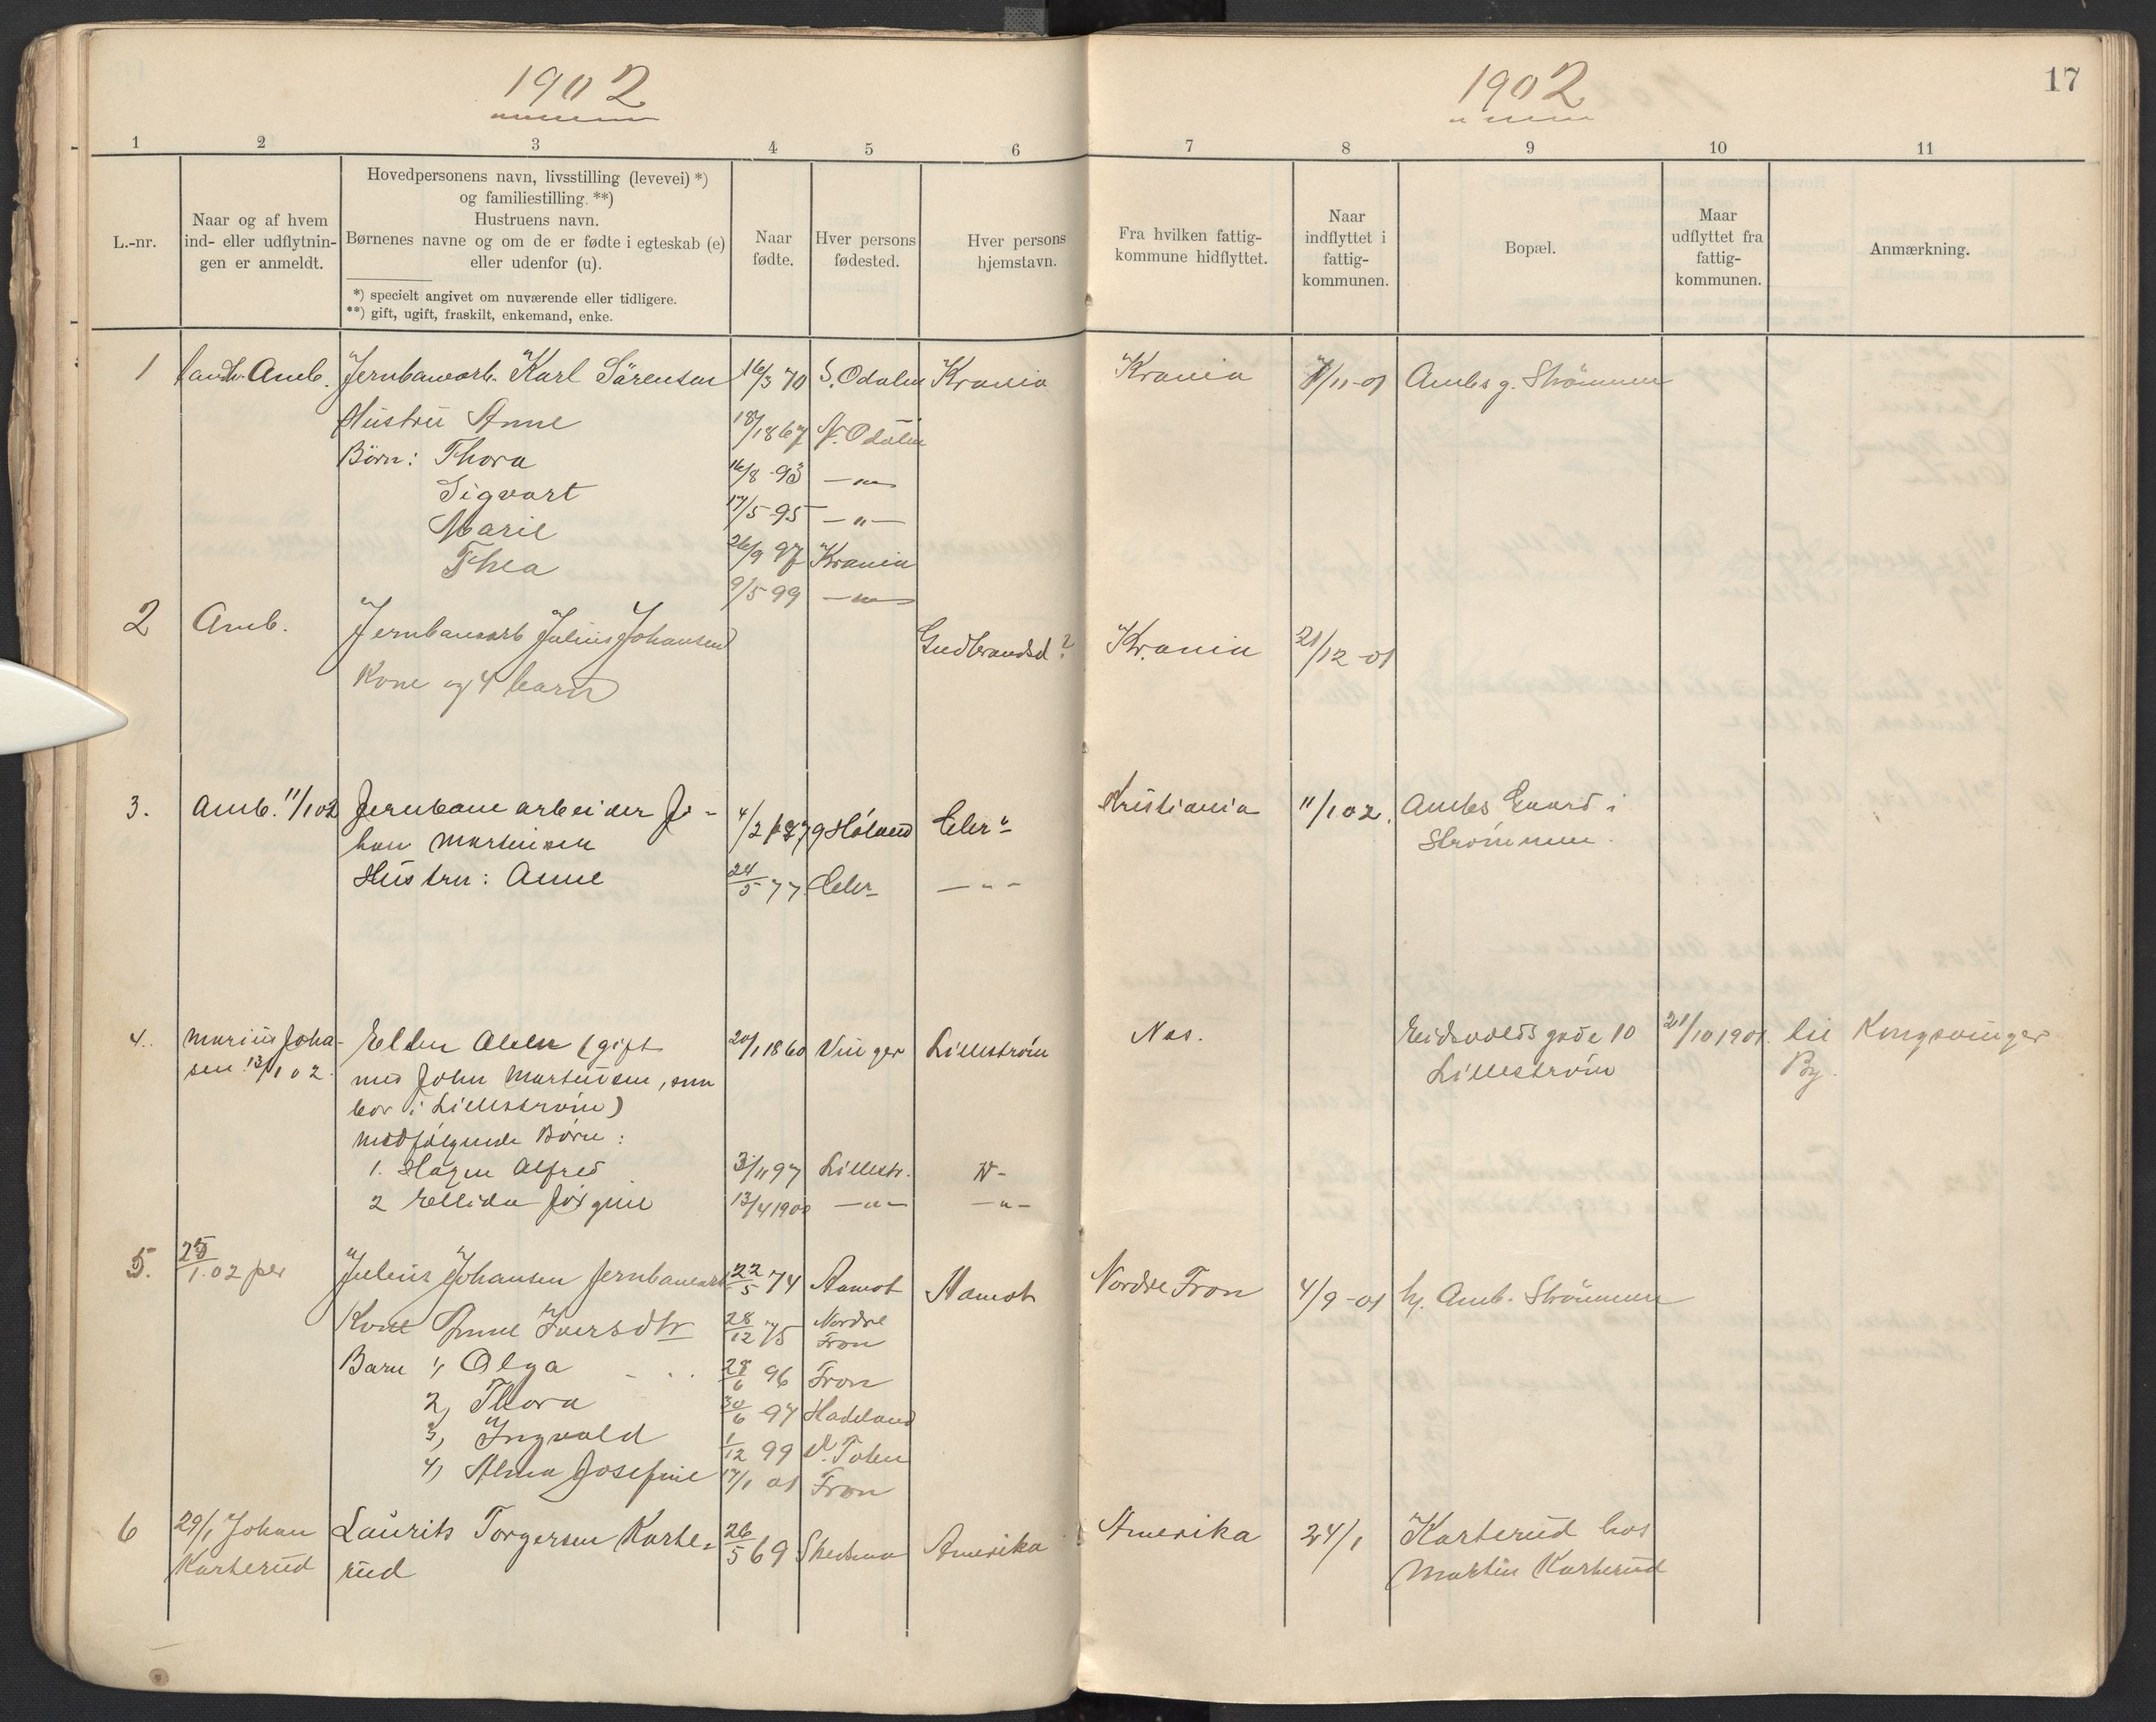 1902
1902
17
1 2 3 4 5 6 7 8 9 10 11
L.-nr.
Naar og af hvem
ind- eller udflytnin-
gen er anmeldt.
Hovedpersonens navn, livsstilling (levevei) *)
og familiestilling. **)
Hustruens navn.
Børnenes navne og om de er fødte i egteskab (e)
eller udenfor (u).
*) specielt angivet om nuværende eller tidligere.
**) gift, ugift, fraskilt, enkemand, enke.
Naar
fødte.
Hver persons
fødested.
Hver persons
hjemstavn.
Fra hvilken fattig-
kommune hidflyttet.
Naar
indflyttet i
fattig-
kommunen.
Bopæl.
Maar
udflyttet fra
fattig-
kommunen.
Anmærkning.
1 Amb. Jernbanearb. Karl Sörensen 16/3 70 S. Odalen Krania Krania 7/11-01 Ambs g. Strömmen
Hustru Anne 18/1 1867 N. Odalen
Börn: Thora 16/8 -93 — " —
Sigvart 17/5 -95 — " —
Marie 26/9 97 Krania
Thea 9/5 99 — " —
2 Amb. Jernbanearb Julius Johansen Gudbrandsd? Krania 21/12-01
Kone og 4 barn
3. Amb. 11/1 02 Jernbane arbeider Jo- 4/2 1879 Höland Eker Kristiania 11/1 02. Ambs Gaard i
han Martinsen Strömmen.
Hustru: Anne 24/5 77 Eker — " —
4. Marius Johan- Ellen Olsen (gift 20/1 1860 Vinger Lilleström Nes. Eidsvolds gade 10 21/10 1901. til Kongsvinger
sen 13/1 02. med John Martinsen, som Lilleström By.
bor i Lilleström)
medfølgende Börn:
1. Hagen Alfred 3/11 97 Lillestr. N-
2 Ellida Jörgine 13/4 1900 — " — — " —
5. 25/1.02 per Julius Johansen Jernbanearb 22/5 74 Aamot Aamot Nordre Fron 4/9-01 hj. Amb. Strömmen
Kone Anne Iversdtr 28/12 75 Nordre
Fron
Barn 1, Olga 28/6 96 Fron
2, Thora 30/6 -97 Hadeland
3, Ingvald 1/12 99 V. Toten
4, Alma Josefine 17/1 01 Fron
6 29/1 Johan Laurits Torgersen Karte- 26/5 69 Skedsmo Amerika Amerika 24/1 Karterud hos
Karterud rud Martin Karterud